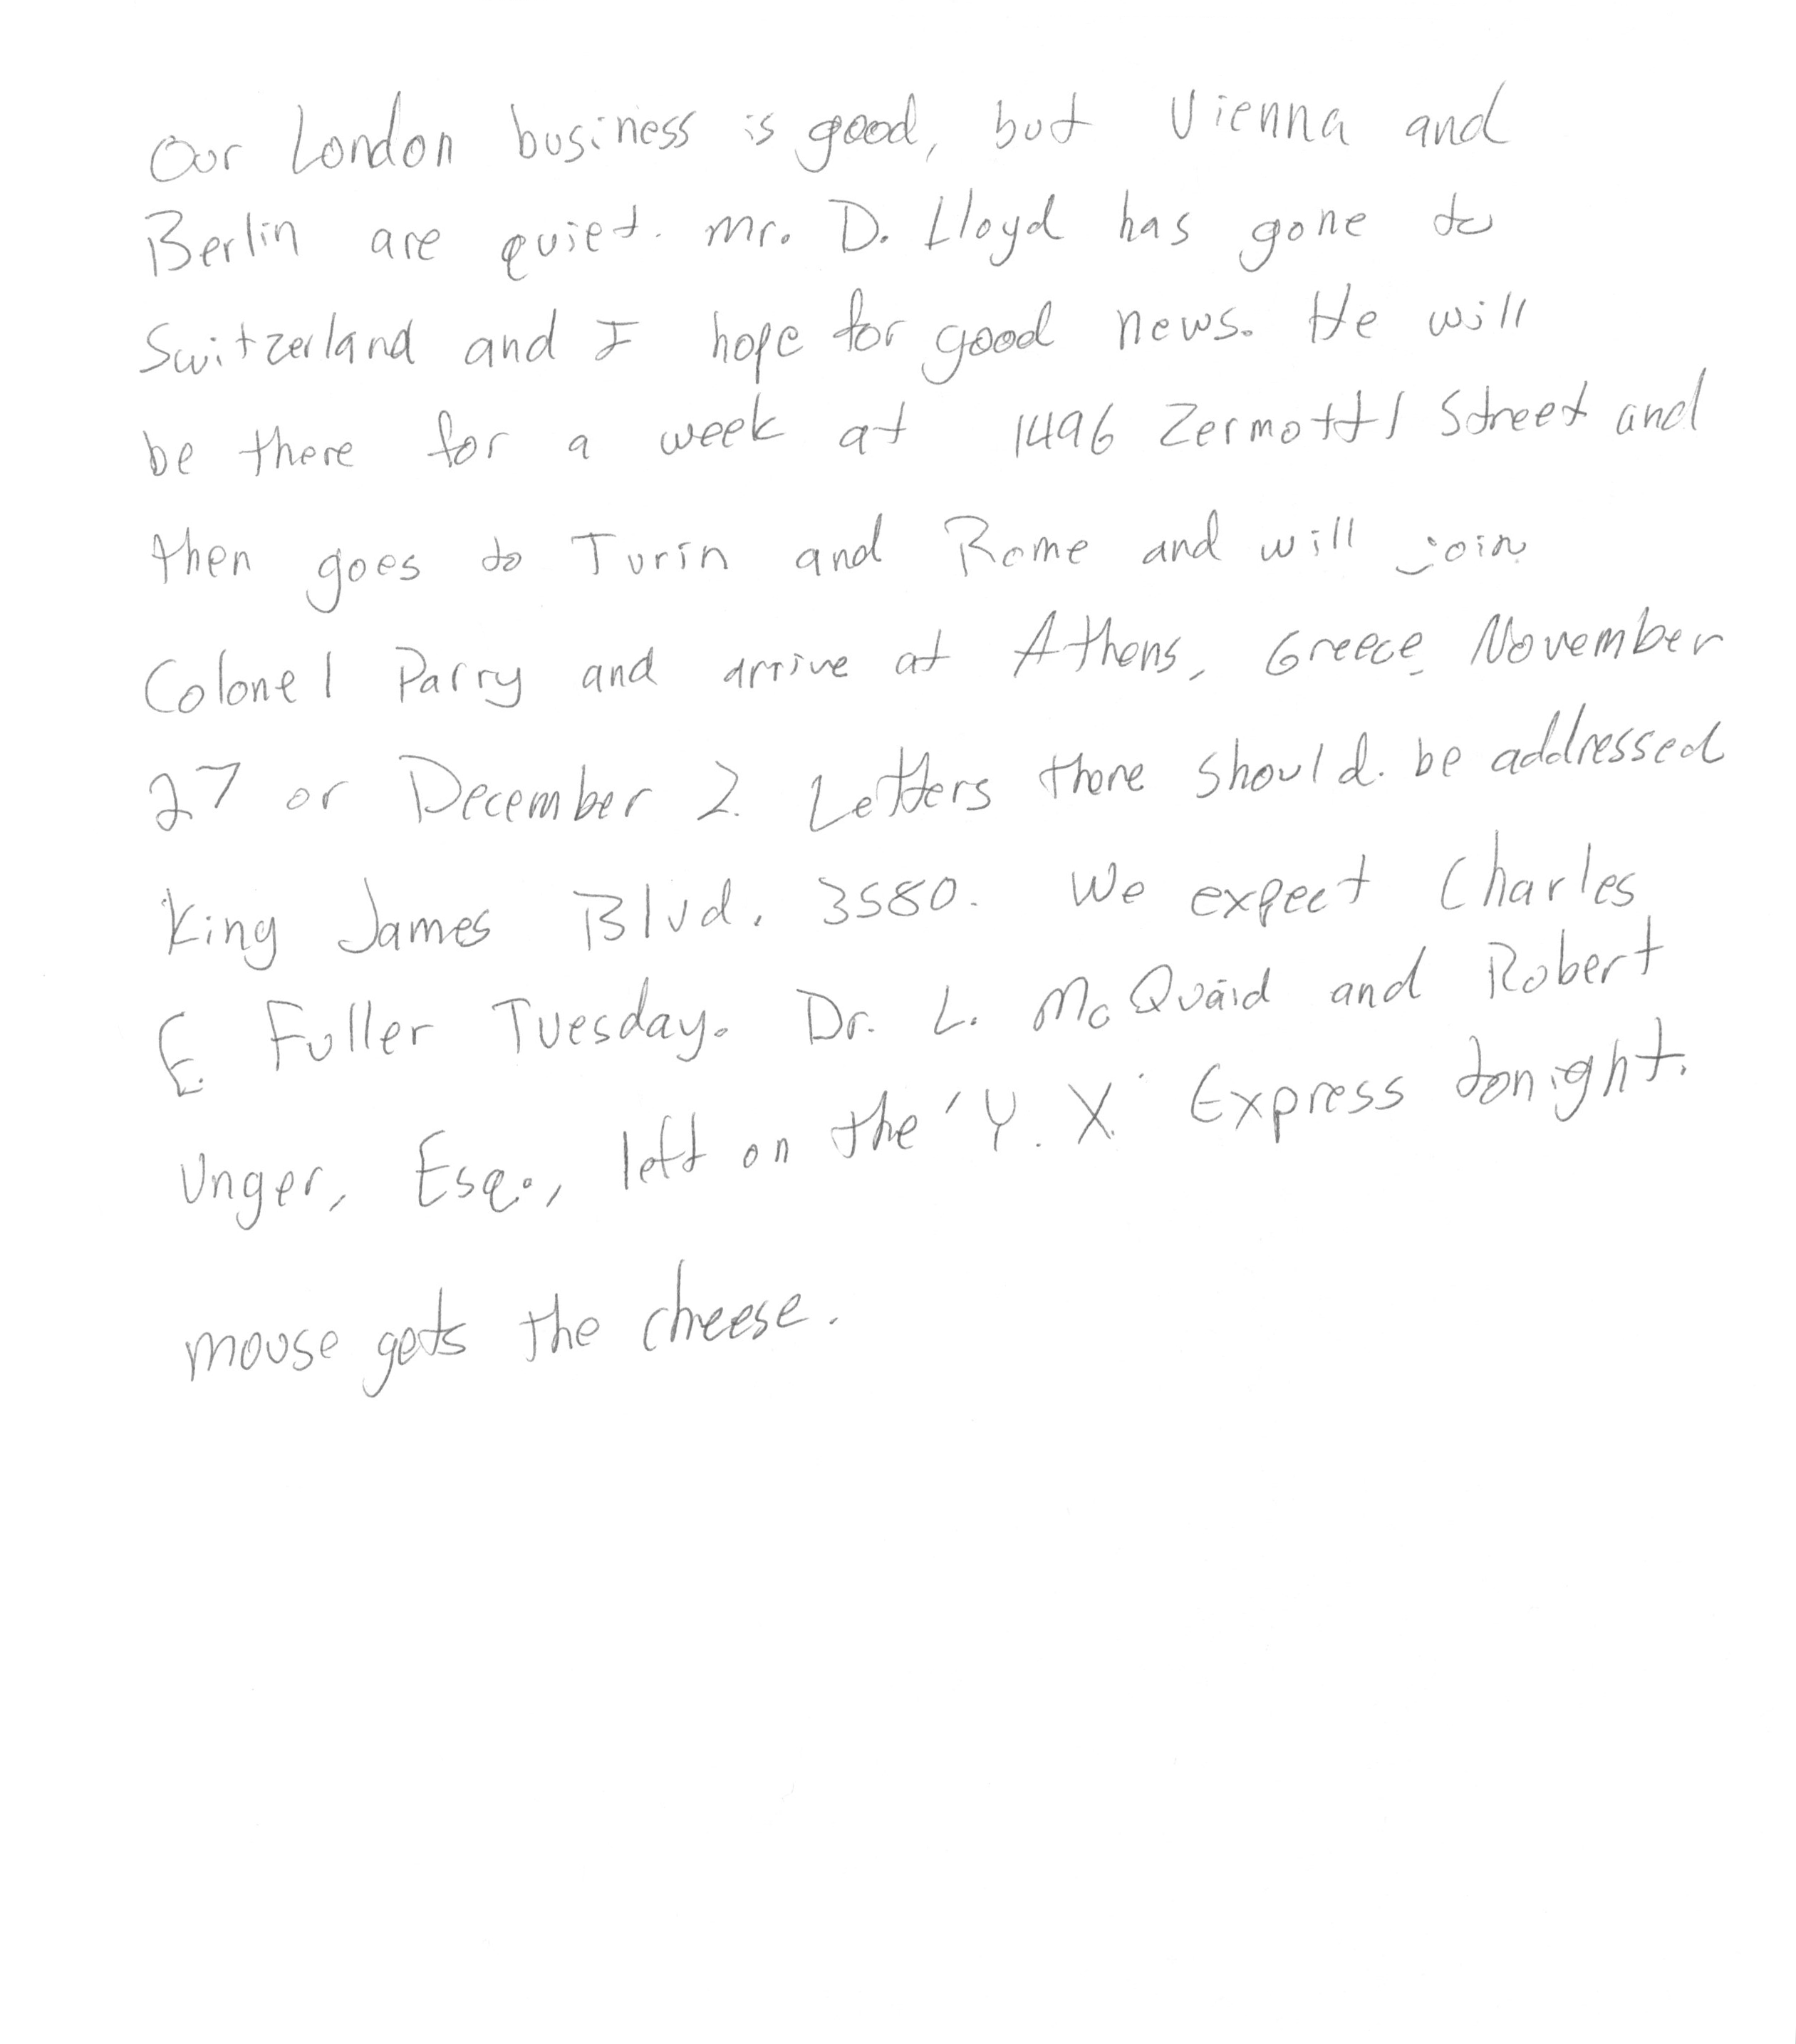 Our London business is good, but Vienna and
Berlin are quiet. Mr. D. Lloyd has gone to
Switzerland and I hope for good news. He will
be there for a week at 1496 Zermott Street and
then goes to Turin and Rome and will join
Colonel Parry and arrive at Athens, Greece, November
27 or December 2. Letters there should be addressed
King James Blvd. 3580. We expect Charles
E. Fuller Tuesday. Dr. L. McQuaid and Robert
Unger, Esq., left on the 'Y. X.' Express tonight.
mouse gets the cheese.